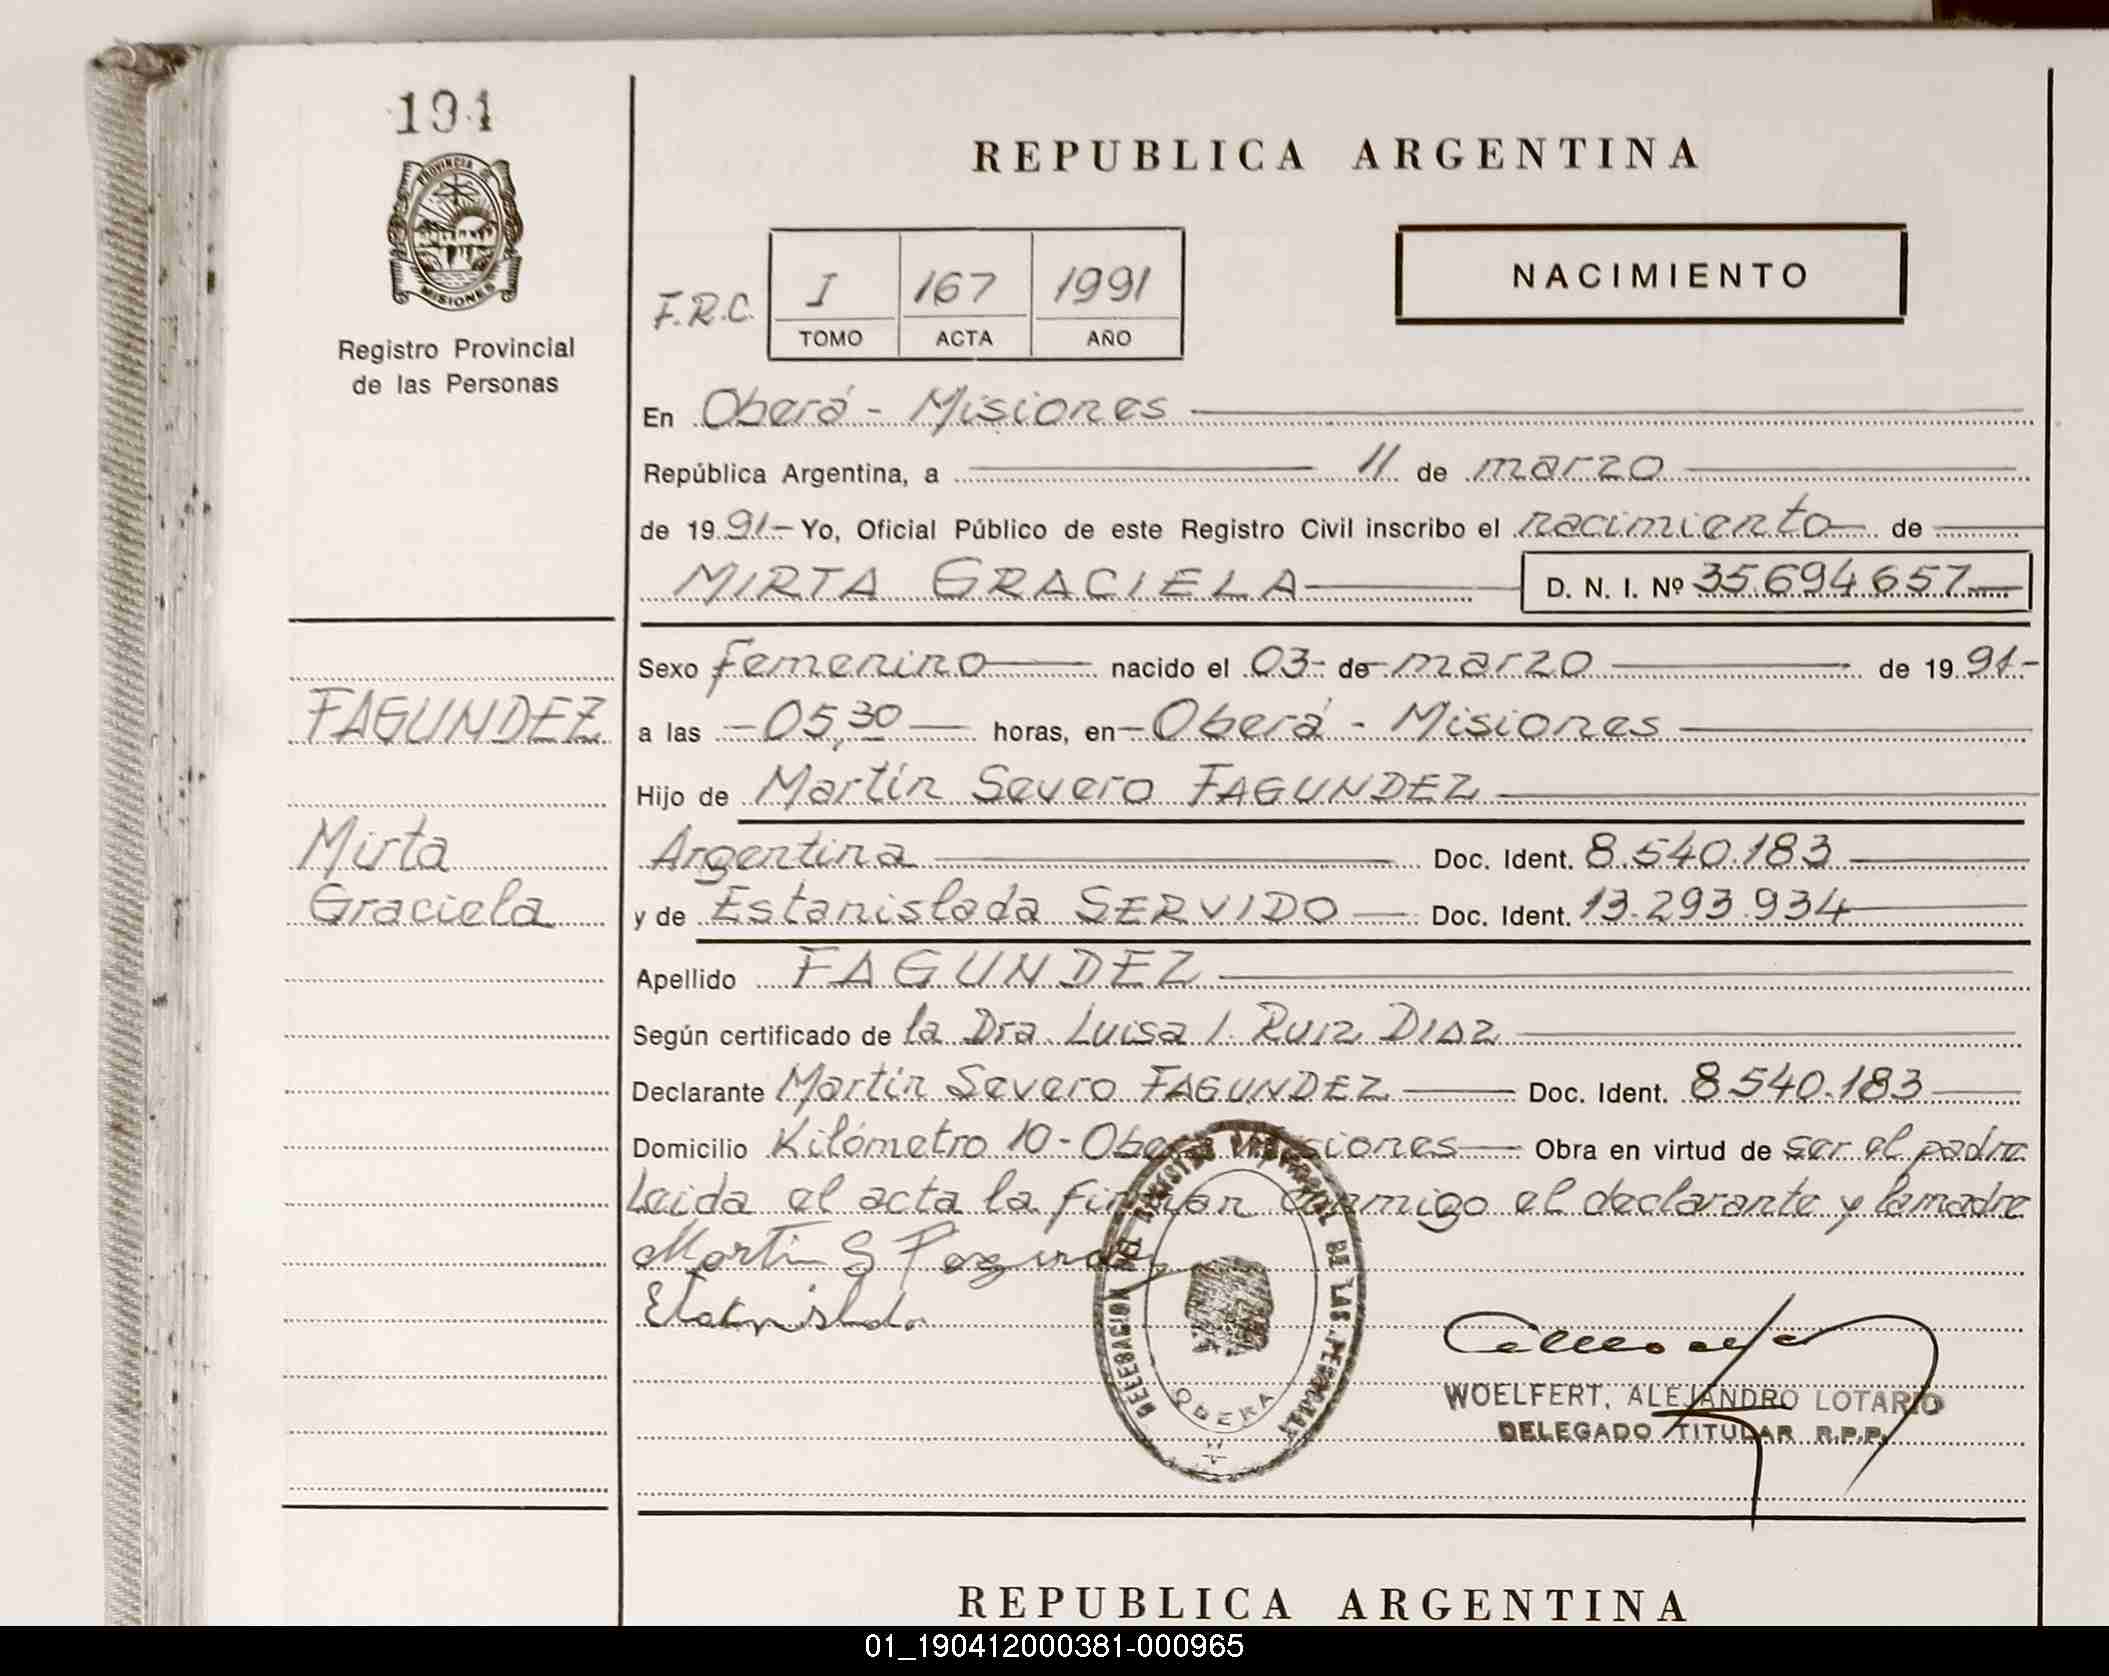 194
PROVINCIA DE
MISIONES
Registro Provincial
de las Personas
FAGUNDEZ
Mirta
Graciela
REPUBLICA ARGENTINA
NACIMIENTO
F.R.C. I 167 1991
TOMO ACTA AÑO
En Oberá - Misiones
República Argentina, a 11 de marzo
de 1991- Yo, Oficial Público de este Registro Civil inscribo el nacimiento de
MIRTA GRACIELA D. N. I. Nº 35.694.657
Sexo femenino nacido el 03- de marzo de 1991-
a las 05,30 horas, en Oberá - Misiones
Hijo de Martín Severo FAGUNDEZ
Argentina Doc. Ident. 8.540.183
y de Estanislada SERVIDO Doc. Ident. 13.293.934
Apellido FAGUNDEZ
Según certificado de la Dra. Luisa I. RUIZ DIAZ
Declarante Martín Severo FAGUNDEZ Doc. Ident. 8.540.183
Domicilio Kilómetro 10 - Oberá Misiones Obra en virtud de ser el padre
Leida el acta la firman conmigo el declarante y la madre
Martin S Fagundez
DELEGACION DEL REGISTRO PROVINCIAL DE LAS PERSONAS
OBERA
WOELFERT, ALEJANDRO LOTARIO
DELEGADO TITULAR R.P.P.
REPUBLICA ARGENTINA
01_190412000381-000965